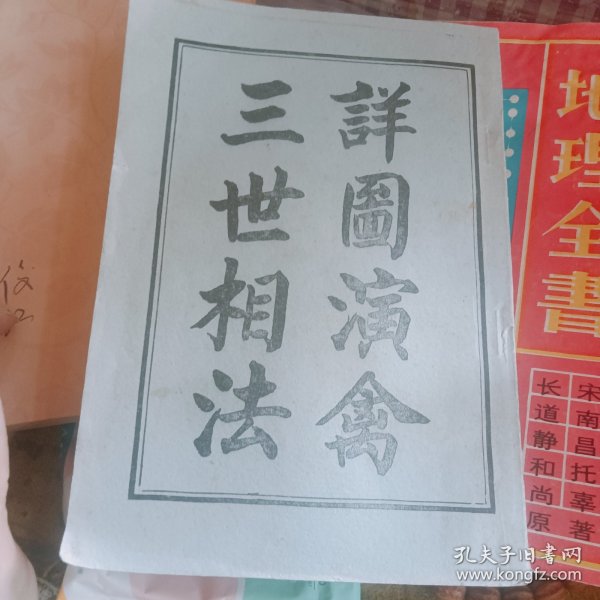 詳圖演禽
三世相法
地理全書
宋南昌托辜
长道静和尚原著
孔夫子旧書网
www.kongfz.com